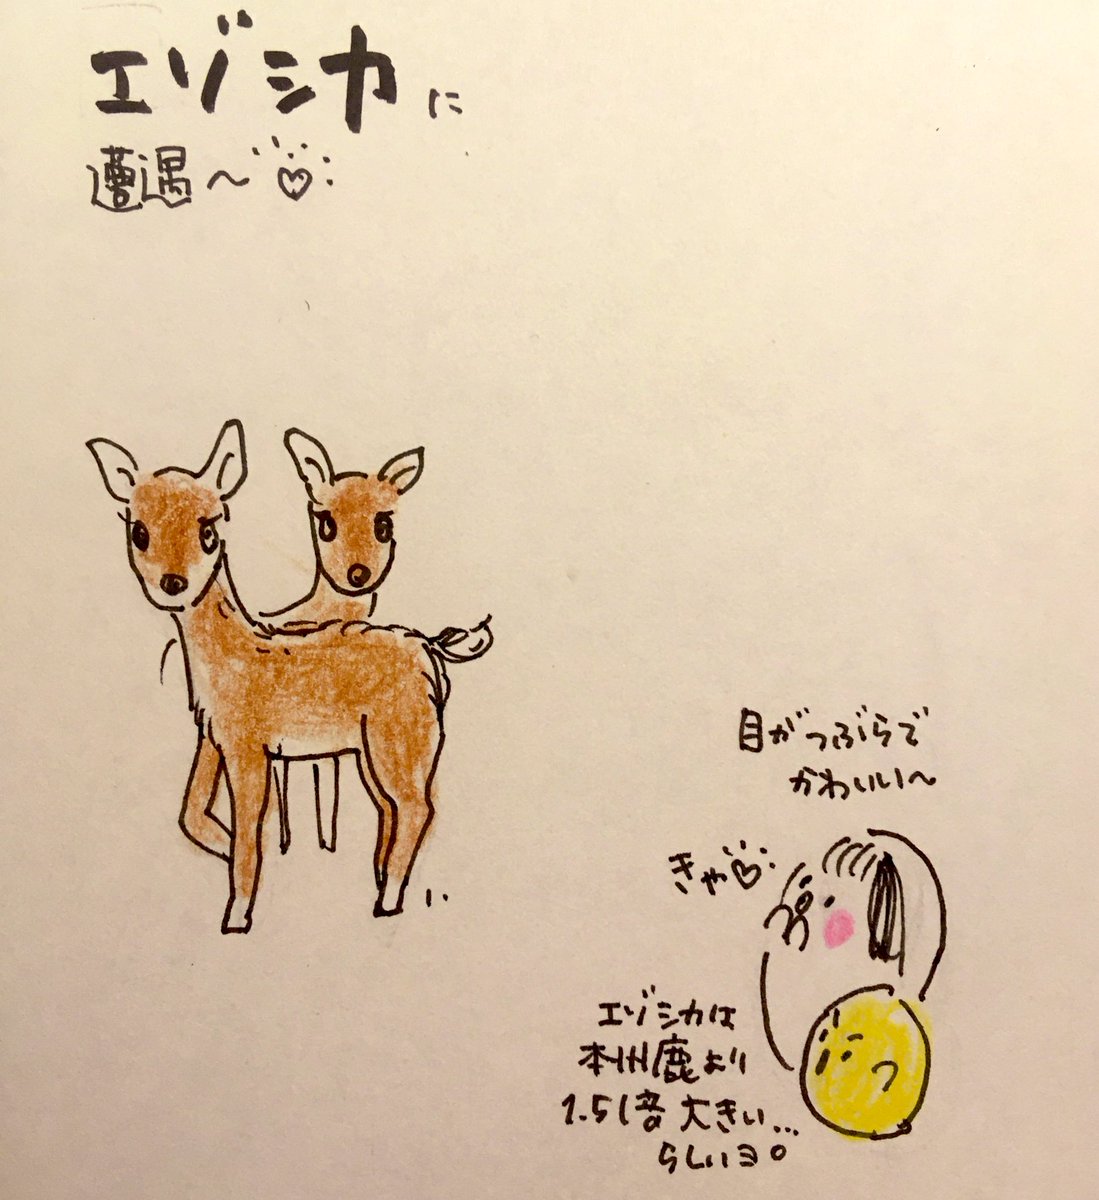 エゾシカに
遭遇〜♡
目がつぶらで
かわいい〜
きゃ♡
エゾシカは
本州鹿より
1.5倍大きい...
らしいヨ。